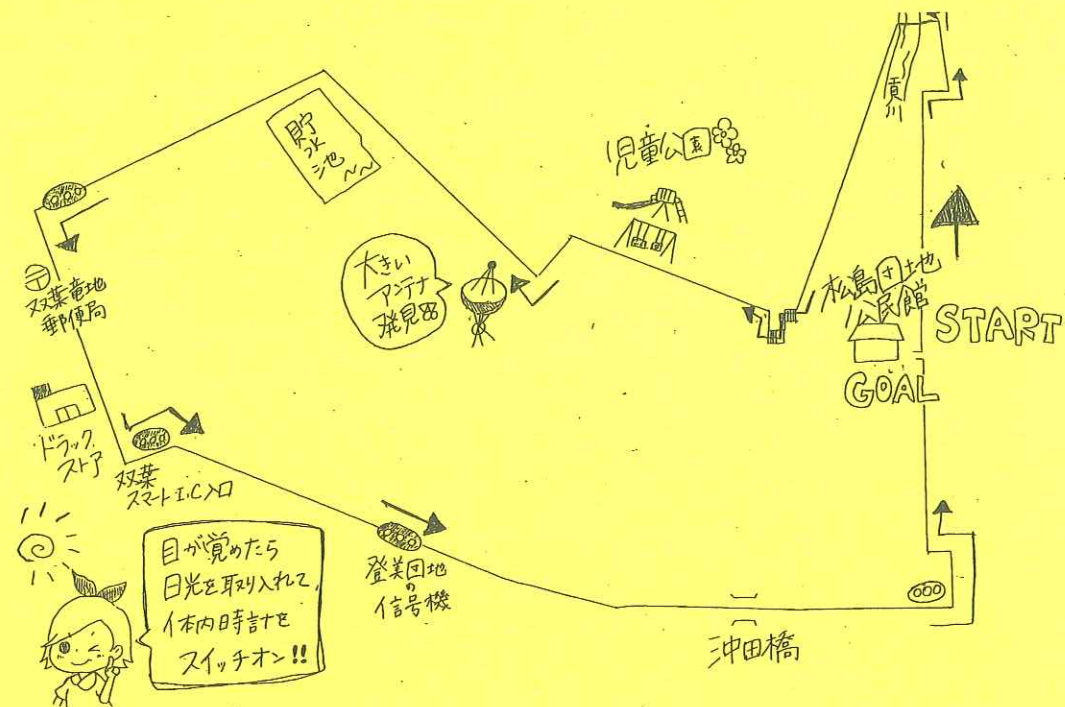 貢川
児童公園
貯水池
大きい
アンテナ
発見
松島団地
公民館
START
GOAL
双葉竜地
郵便局
ドラック
ストア
双葉
スマートI.C入口
登美団地
の
信号機
沖田橋
目が覚めたら
日光を取り入れて、
体内時計を
スイッチオン!!